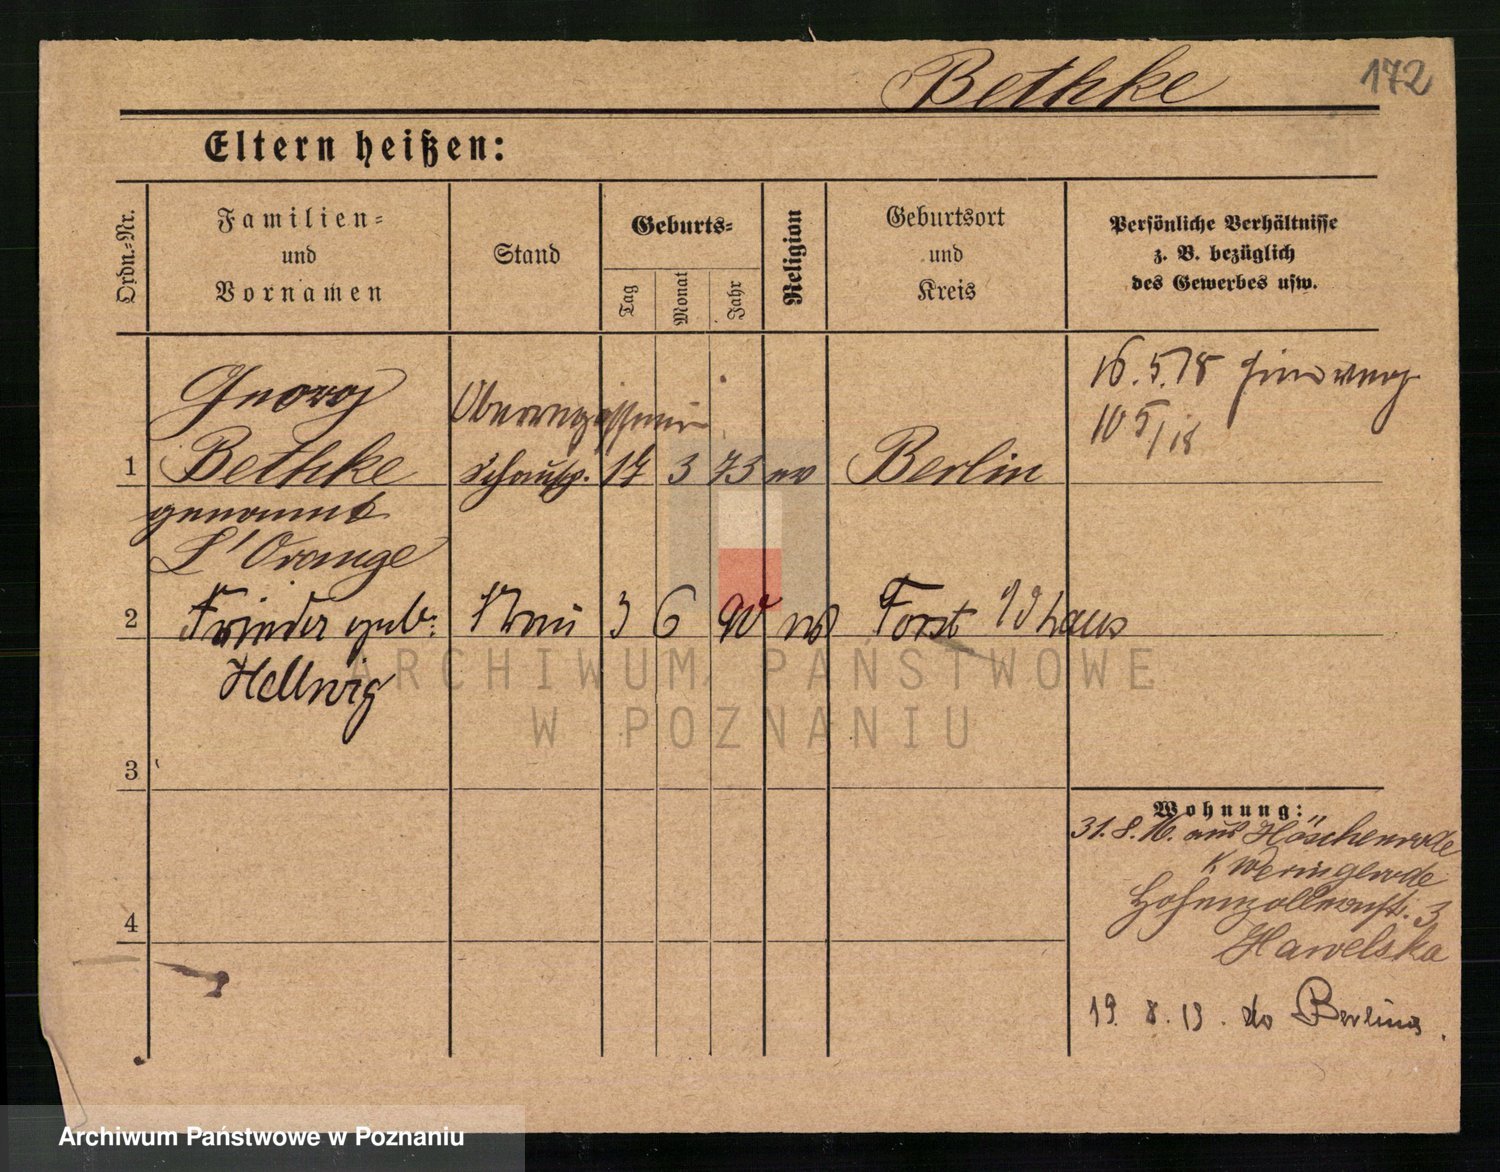 Bethke
172
Eltern heißen:
Ordn.-Nr.
Familien-
und
Vornamen
Stand
Geburts-
Tag
Monat
Jahr
Religion
Geburtsort
und
Kreis
Persönliche Verhältnisse
z. B. bezüglich
des Gewerbes usw.
16.5.18
10 5/18
Georg
Oberregisseur
1 Bethke Schausp. 17 3 73 ev Berlin
genannt
L'Orange
2 Frieda geb: Frau 3 6 90 ev Forst
Hellwig
3
Wohnung:
31.8.16. aus Höschenrode
K Weringerode
Hohenzollernstr. 3
Hawelska
4
19. 8. 19. do Berlina
ARCHIWUM PAŃSTWOWE
W POZNANIU
Archiwum Państwowe w Poznaniu